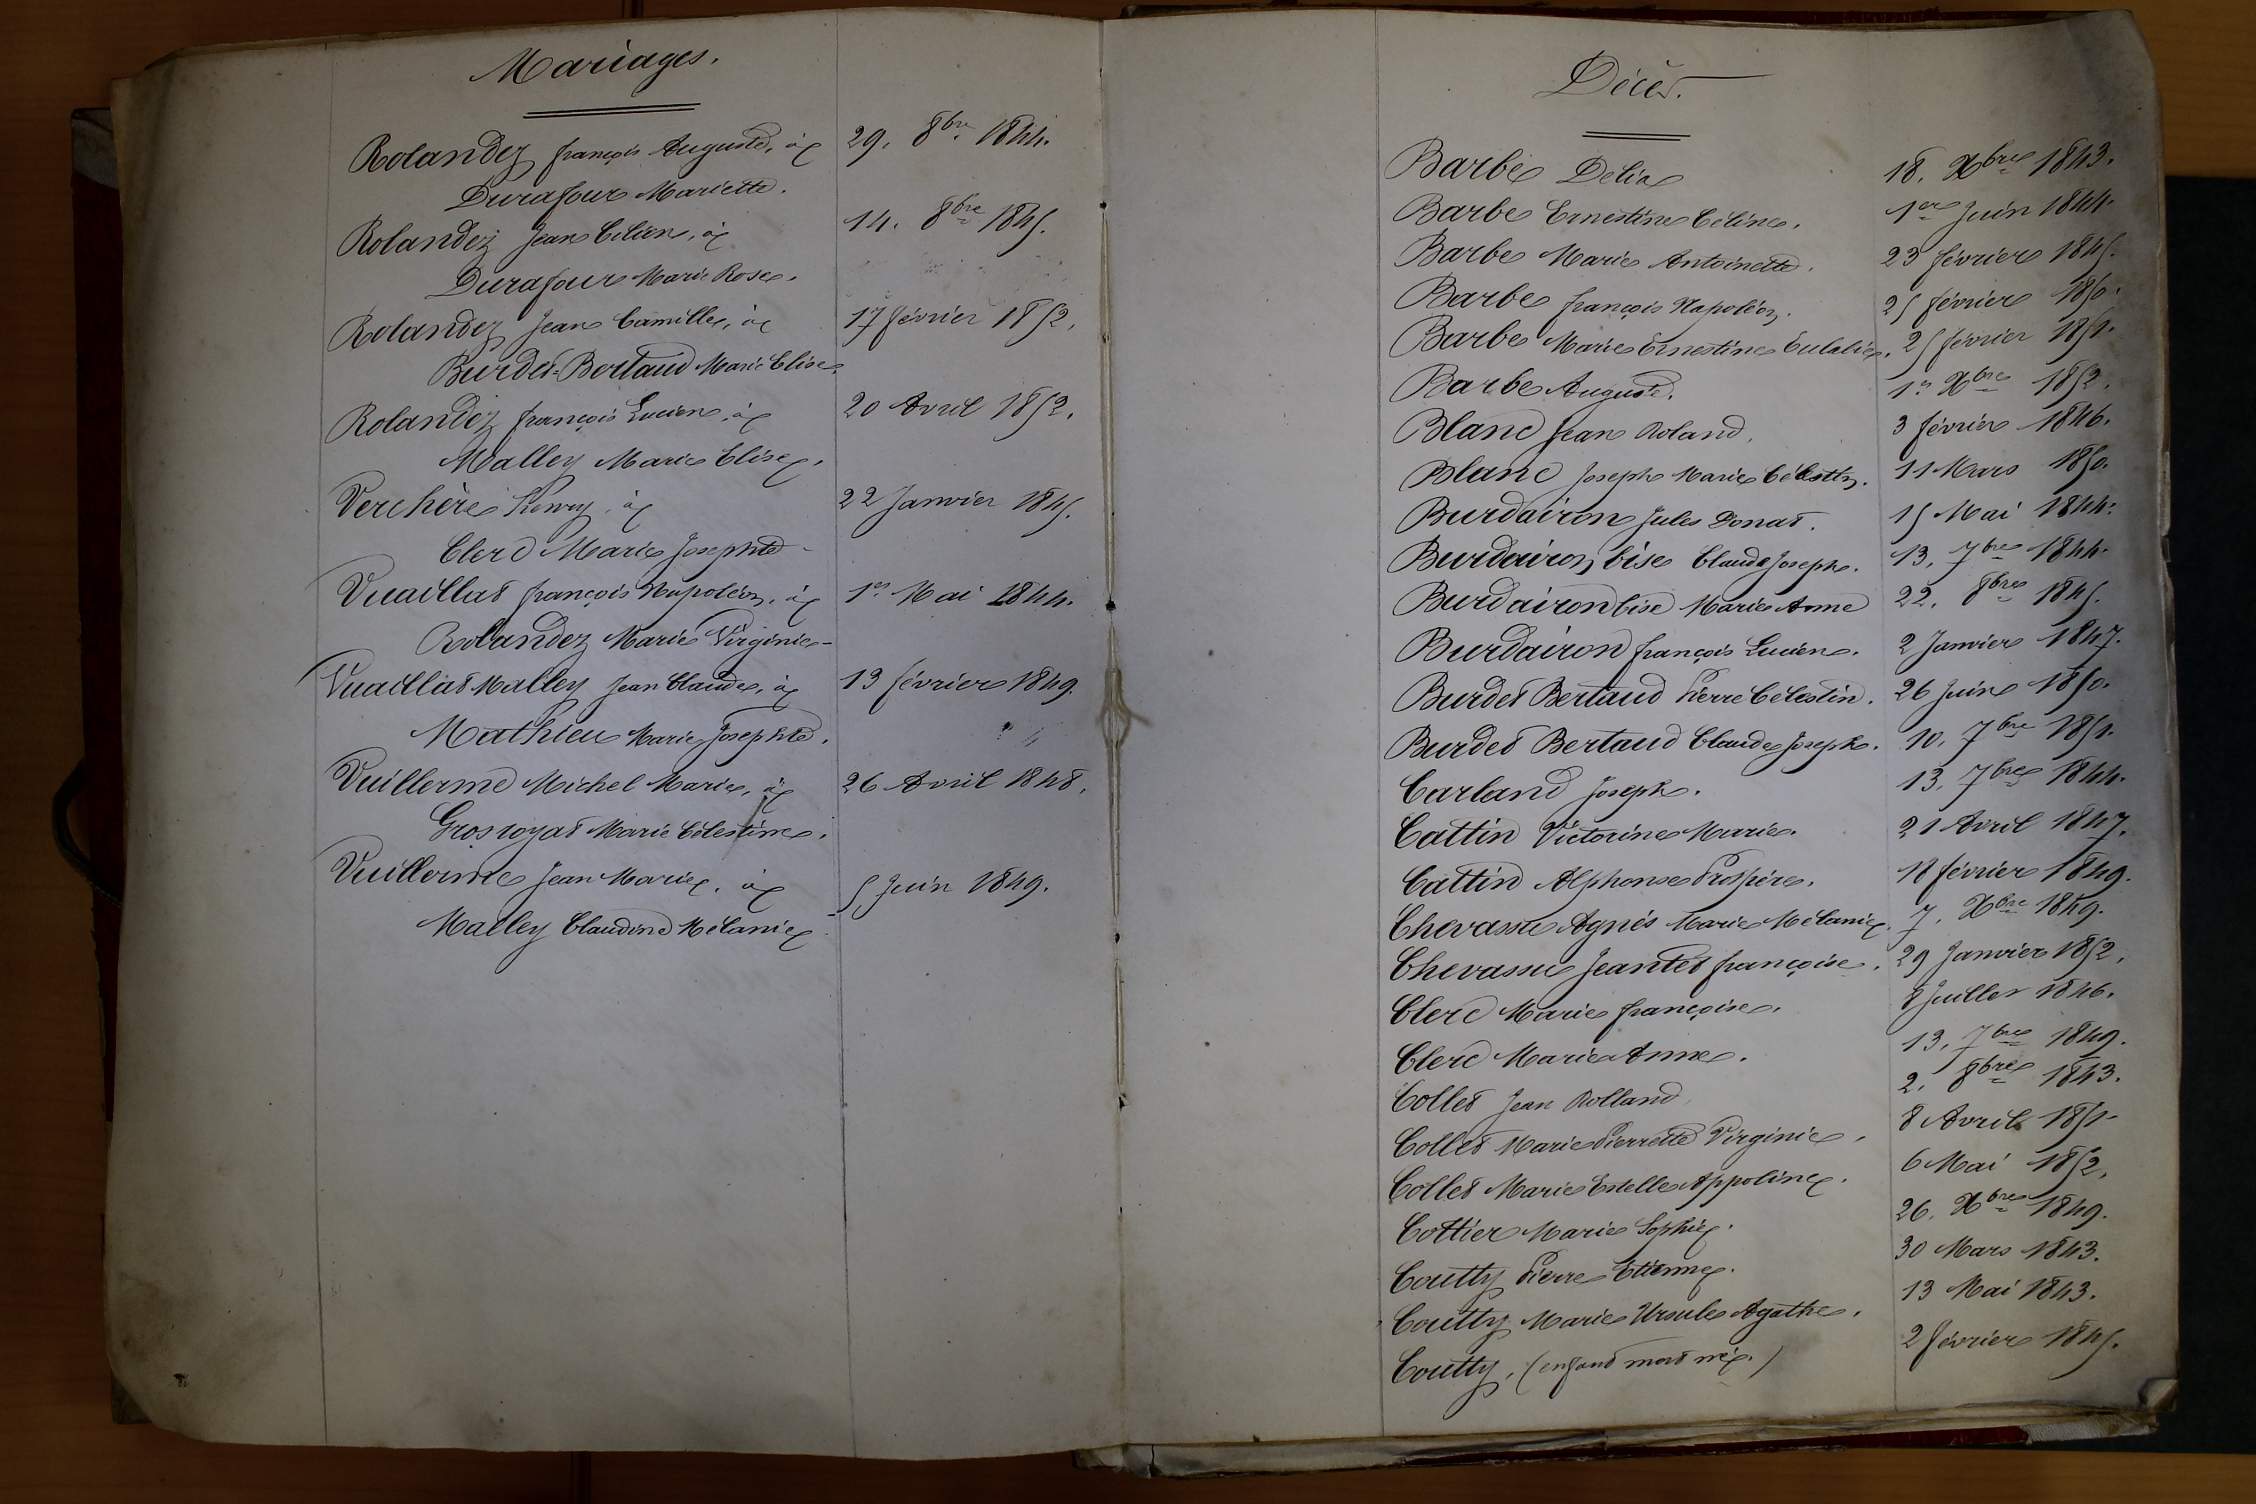 Mariages.
Rolandez françois Auguste, à 29. 8bre 1844.
Durafour Mariette.
Rolandez Jean Célien, à 14. 8bre 1845.
Durafour Marie Rose.
Rolandez Jean Camille, à 17 février 1852.
Burdet-Bertaud Marie Elise.
Rolandez françois Lucien, à 20 Avril 1852.
Malley Marie Elise.
Verchère Henry, à 22 Janvier 1845.
Clerc Marie Josephte
Vuaillat françois Napoléon, à 1er Mai 1844.
Rolandez Marie Virginie
Vuaillat Malley Jean Claude, à 13 février 1849.
Mathieu Marie Josephte.
Vuillerme Michel Marie, à 26 Avril 1848.
Grosroyat Marie Célestine.
Vuillerme Jean Marie, à 5 Juin 1849.
Malley Claudine Mélanie
Décès.
Barbe Délia 18. Xbre 1843.
Barbe Ernestine Céline. 1er Juin 1844.
Barbe Marie Antoinette. 23 février 1845.
Barbe françois Napoléon. 25 février 1850.
Barbe Marie Ernestine Eulalie. 25 février 1851.
Barbe Auguste. 1er Xbre 1852.
Blanc Jean Roland. 3 février 1846.
Blanc Joseph Marie Célestin. 11 Mars 1850.
Burdairon Jules Donat. 15 Mai 1844.
Burdairon bise Claude Joseph. 13. 7bre 1844.
Burdairon bise Marie Anne 22. 8bre 1845.
Burdairon françois Lucien. 2 Janvier 1847.
Burdet Bertaud Pierre Célestin. 26 Juin 1850.
Burdet Bertaud Claude Joseph. 10. 7bre 1851.
Carland Joseph. 13. 7bre 1844.
Cattin Victorine Marie. 21 Avril 1847.
Cattin Alphonse Prospère. 18 février 1849.
Chevassu Agnès Marie Mélanie. 7. Xbre 1849.
Chevassu Jeantet françoise. 29 Janvier 1852.
Clerc Marie françoise. 8 Juillet 1846.
Clerc Marie Anne. 13. 7bre 1849.
Collet Jean Rolland. 2. 8bre 1843.
Collet Marie Pierrette Virginie. 8 Avril 1851
Collet Marie Estelle Appoline. 6 Mai 1852.
Cottier Marie Sophie. 26. Xbre 1849.
Coutty Pierre Etienne. 30 Mars 1843.
Coutty Marie Ursule Agathe. 13 Mai 1843.
Coutty, (enfant mort né.) 2 février 1845.